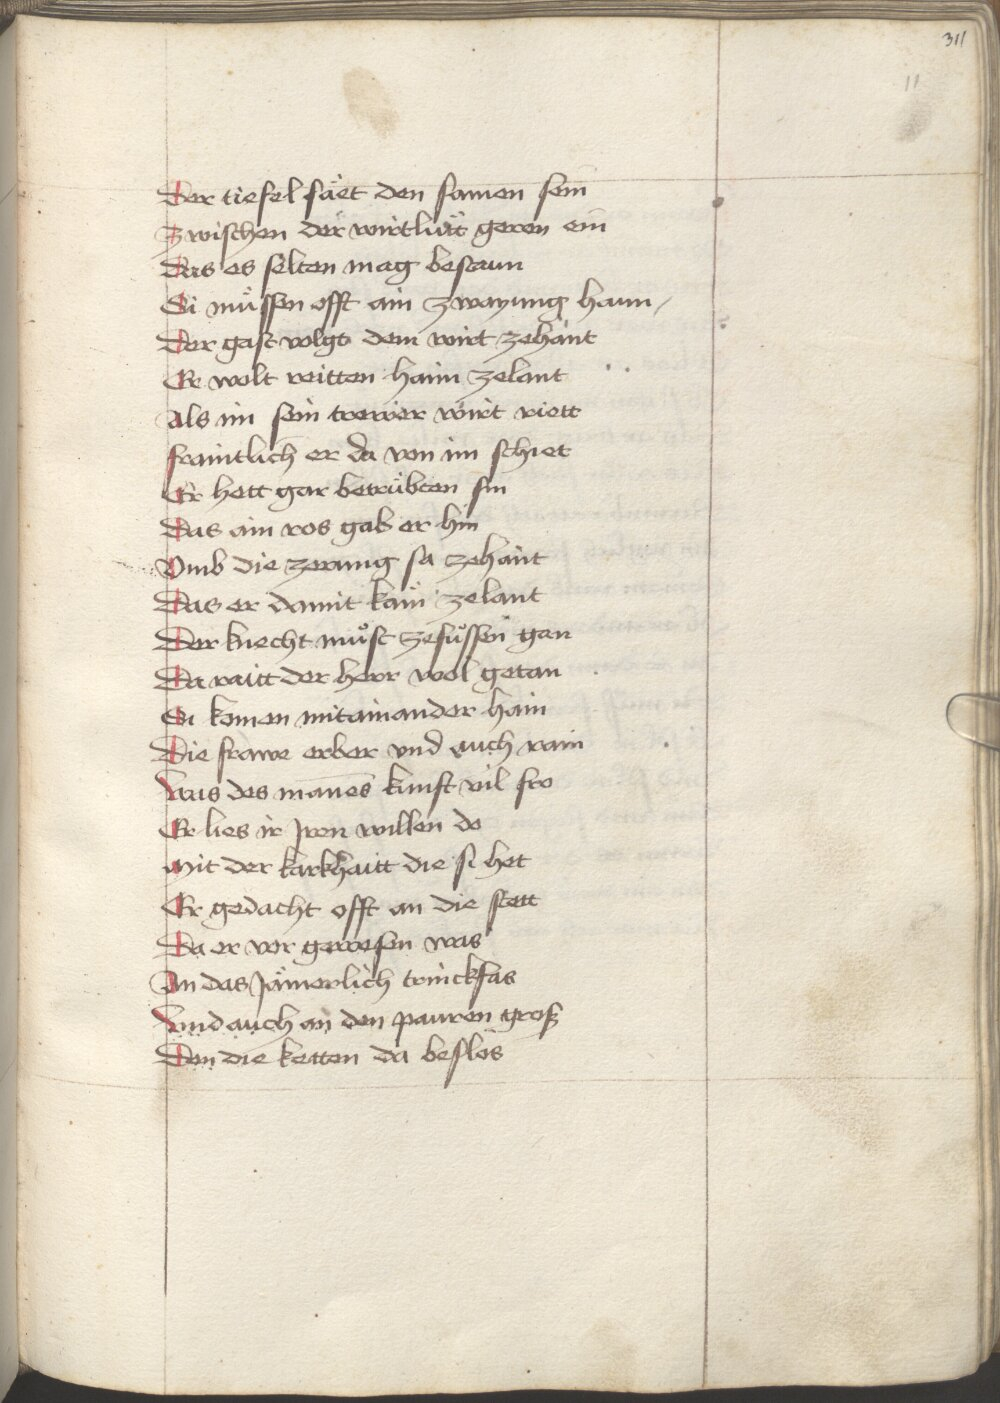 311
11
Der tiefel säet den samen sein
Zwischen der wirtlüt geren ein
Das es selten mag bestaun
Si müssen offt ain zwayung haun /
Der gast volgt dem wirt zehant
Er wolt reitten haim zelant
Als im sein trewer wirt riett
fraintlich er da von im schiet
Er hett gar betrübten sin
Das ain ros gab er hin
Vmb die zerung sa zehant
Das er damit käm zelant
Der knecht muͦst zefuͦssen gan
Da raitt der herr wol getan
Si komen mitainander haim
Die frawe erber vnd auch rain
Was des mañes kunft vil fro
Er lies ir Jren willen do
Mit der karkhaitt die si het
Er gedacht offt an die stett
Da er vor gewesen was
An das Jämerlich trinckfas
Vnd auch an den pauren groß
Den die ketten da beslos